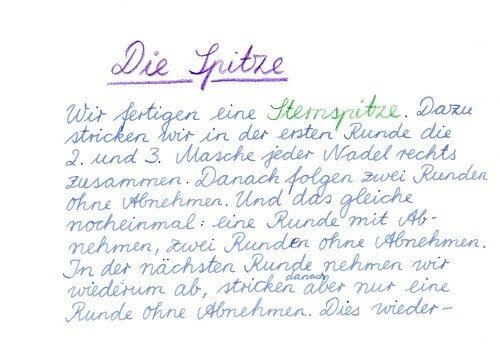 Die Spitze
Wir fertigen eine Sternspitze. Dazu
stricken wir in der ersten Runde die
2. und 3. Masche jeder Nadel rechts
zusammen. Danach folgen zwei Runden
ohne Abnehmen. Und das gleiche
nocheinmal: eine Runde mit Ab-
nehmen, zwei Runden ohne Abnehmen.
In der nächsten Runde nehmen wir
wiederum ab, stricken danach aber nur eine
Runde ohne Abnehmen. Dies wieder-